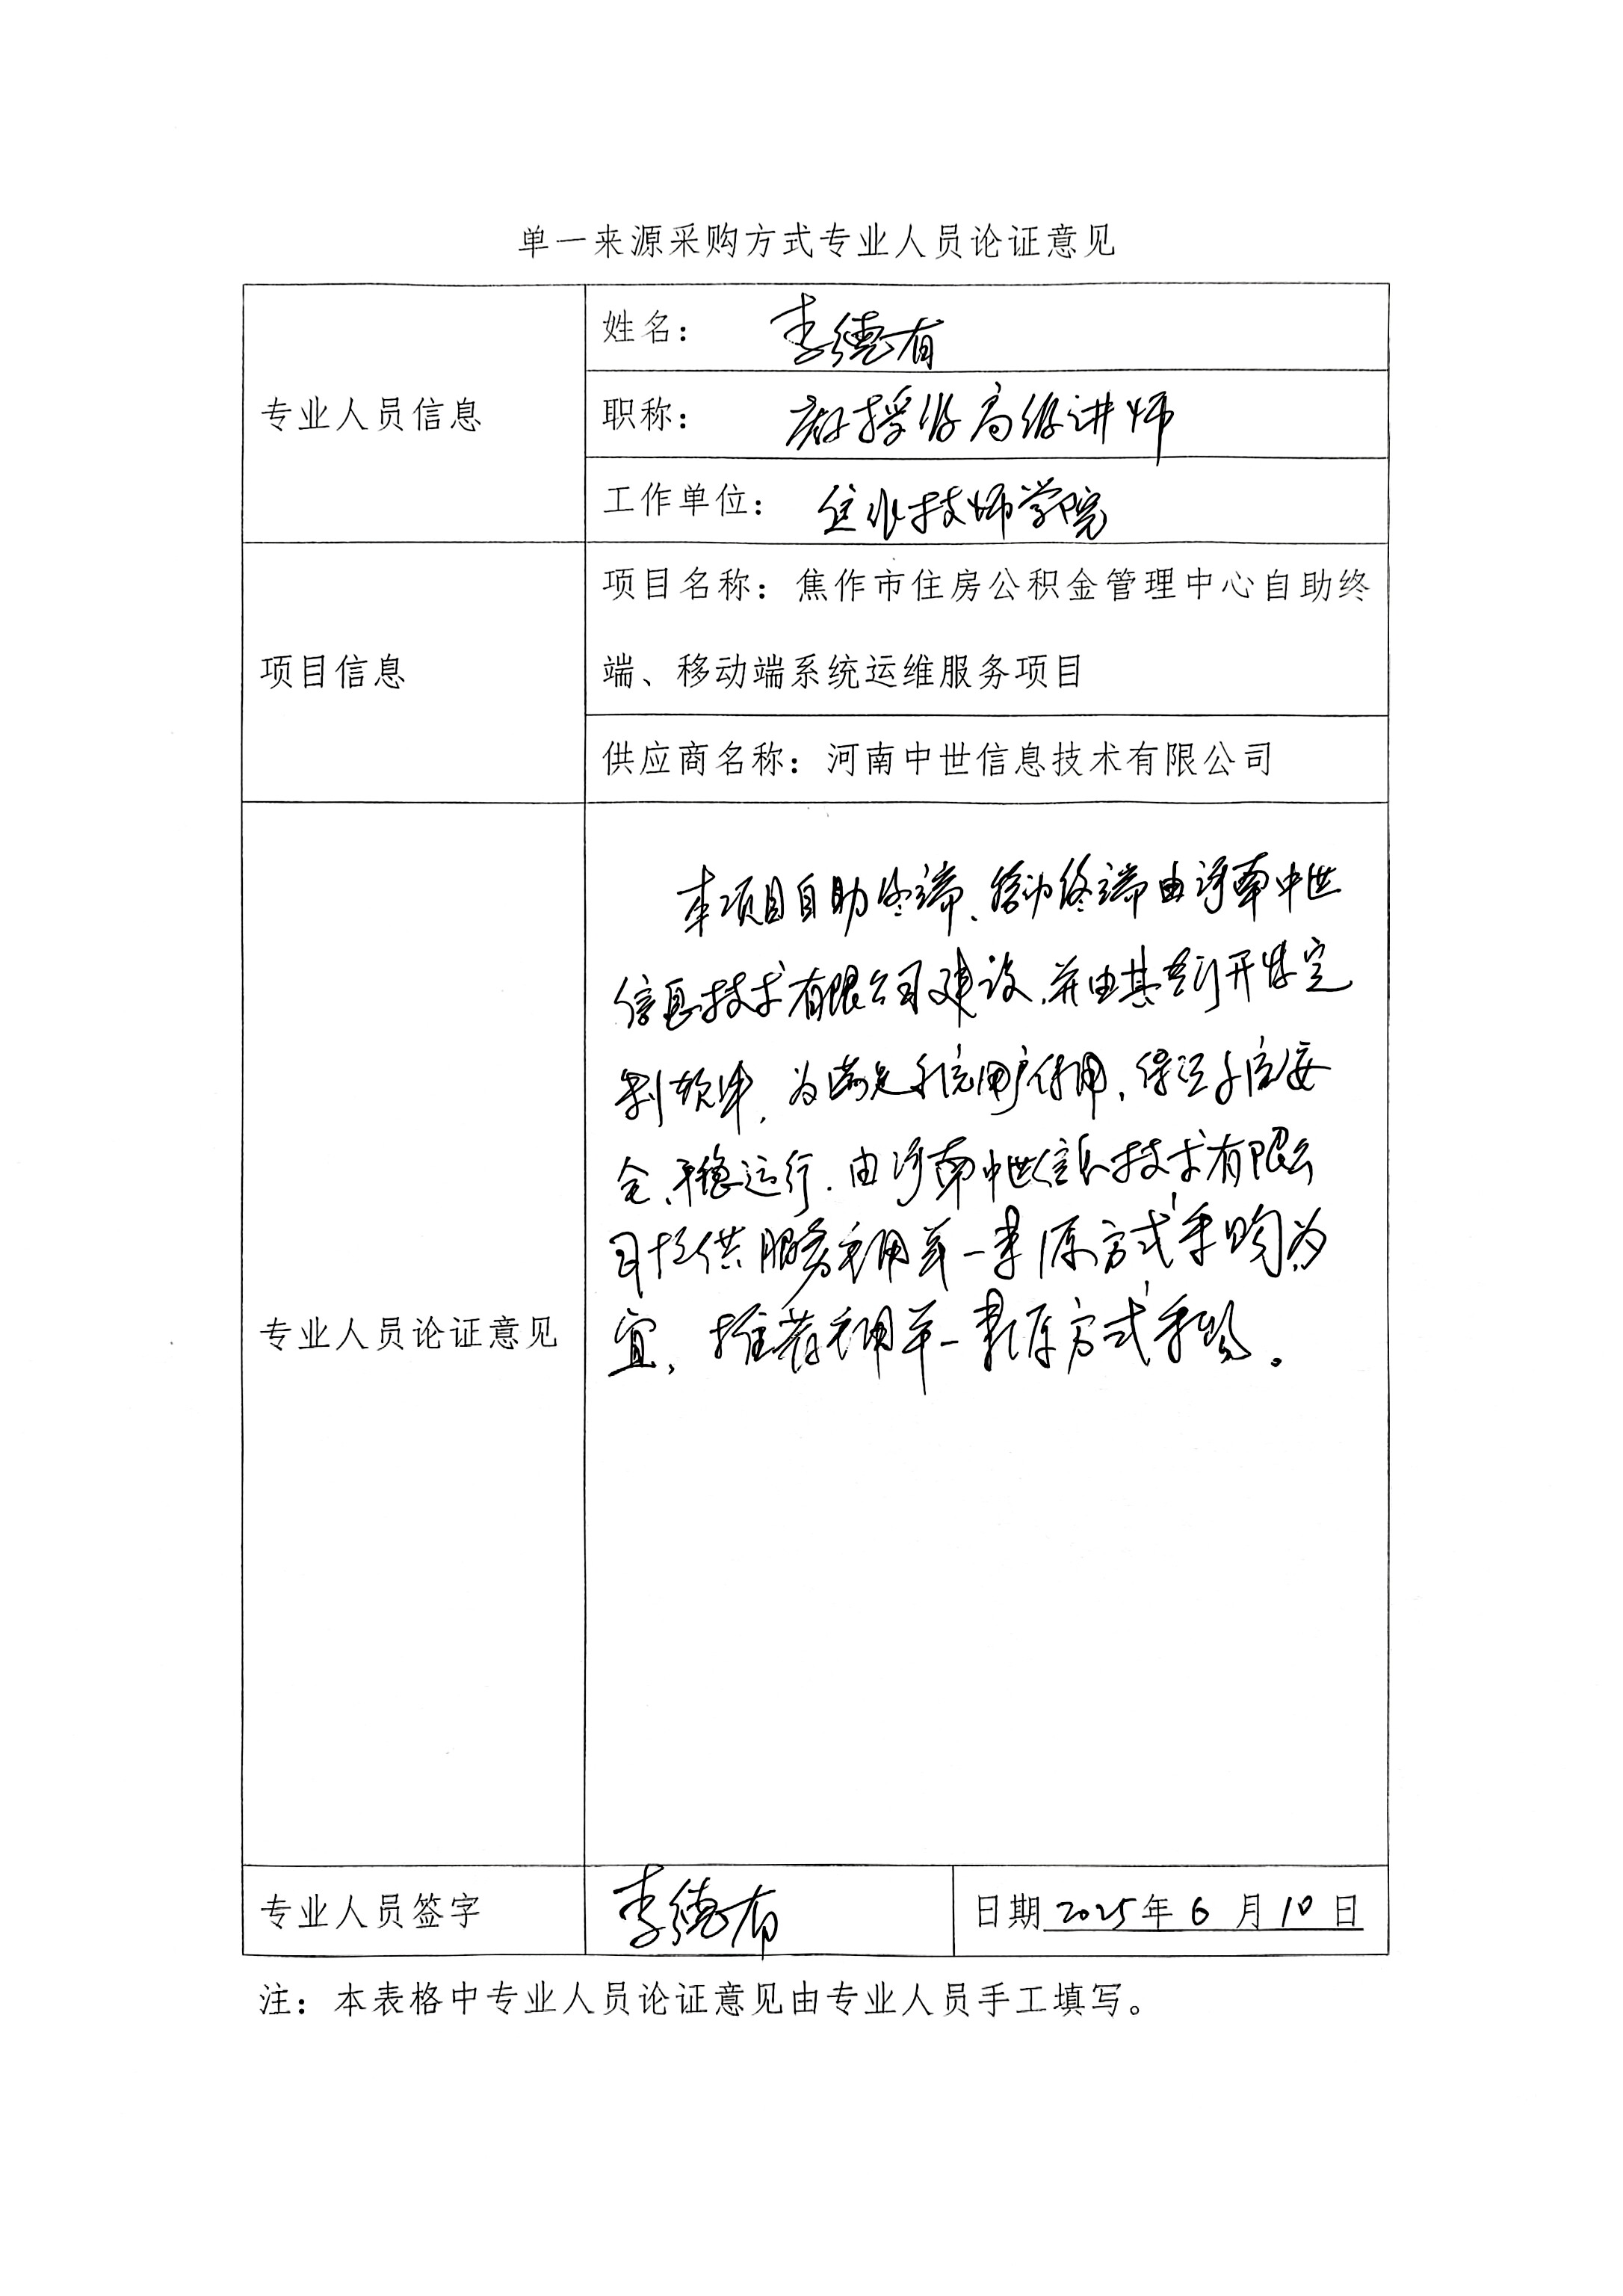 单一来源采购方式专业人员论证意见
专业人员信息
姓名： 李德有
职称： 教授级高级讲师
工作单位： 焦作技师学院
项目信息
项目名称：焦作市住房公积金管理中心自助终
端、移动端系统运维服务项目
供应商名称：河南中世信息技术有限公司
专业人员论证意见
本项目自助终端、移动终端由河南中世
信息技术有限公司建设，并由其开发定
制软件，为满足系统用户使用，保证系统安
全、平稳运行，由河南中世信息技术有限公
司提供服务采用单一来源方式采购为
宜，推荐采用单一来源方式采购。
专业人员签字
李德有
日期2025年6月10日
注：本表格中专业人员论证意见由专业人员手工填写。